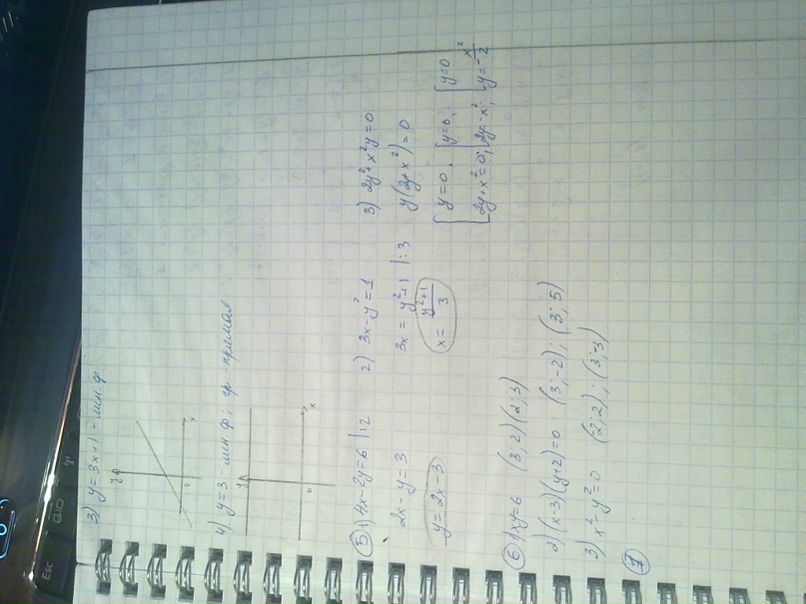 3) y = 3x+1 – лин. ф.
y
0
x
4) y = 3 – лин. ф; гр – прямая
y
0
x
⑤ 1) 4x-2y=6 |:2
2x - y = 3
y = 2x - 3
2) 3x - y² = 1
3x = y²+1 |:3
x = (y²+1)/3
3) 2y²+x²y=0
y(2y+x²)=0
[ y=0 . [ y=0, [ y=0
[ 2y+x²=0; [ 2y=-x²; [ y=-x²/2
⑥ 1) xy=6 (3; 2) (2; 3)
2) (x-3)(y+2)=0 (3; -2); (3; 5)
3) x²-y²=0 (2; 2); (3; -3)
⑦
Esc